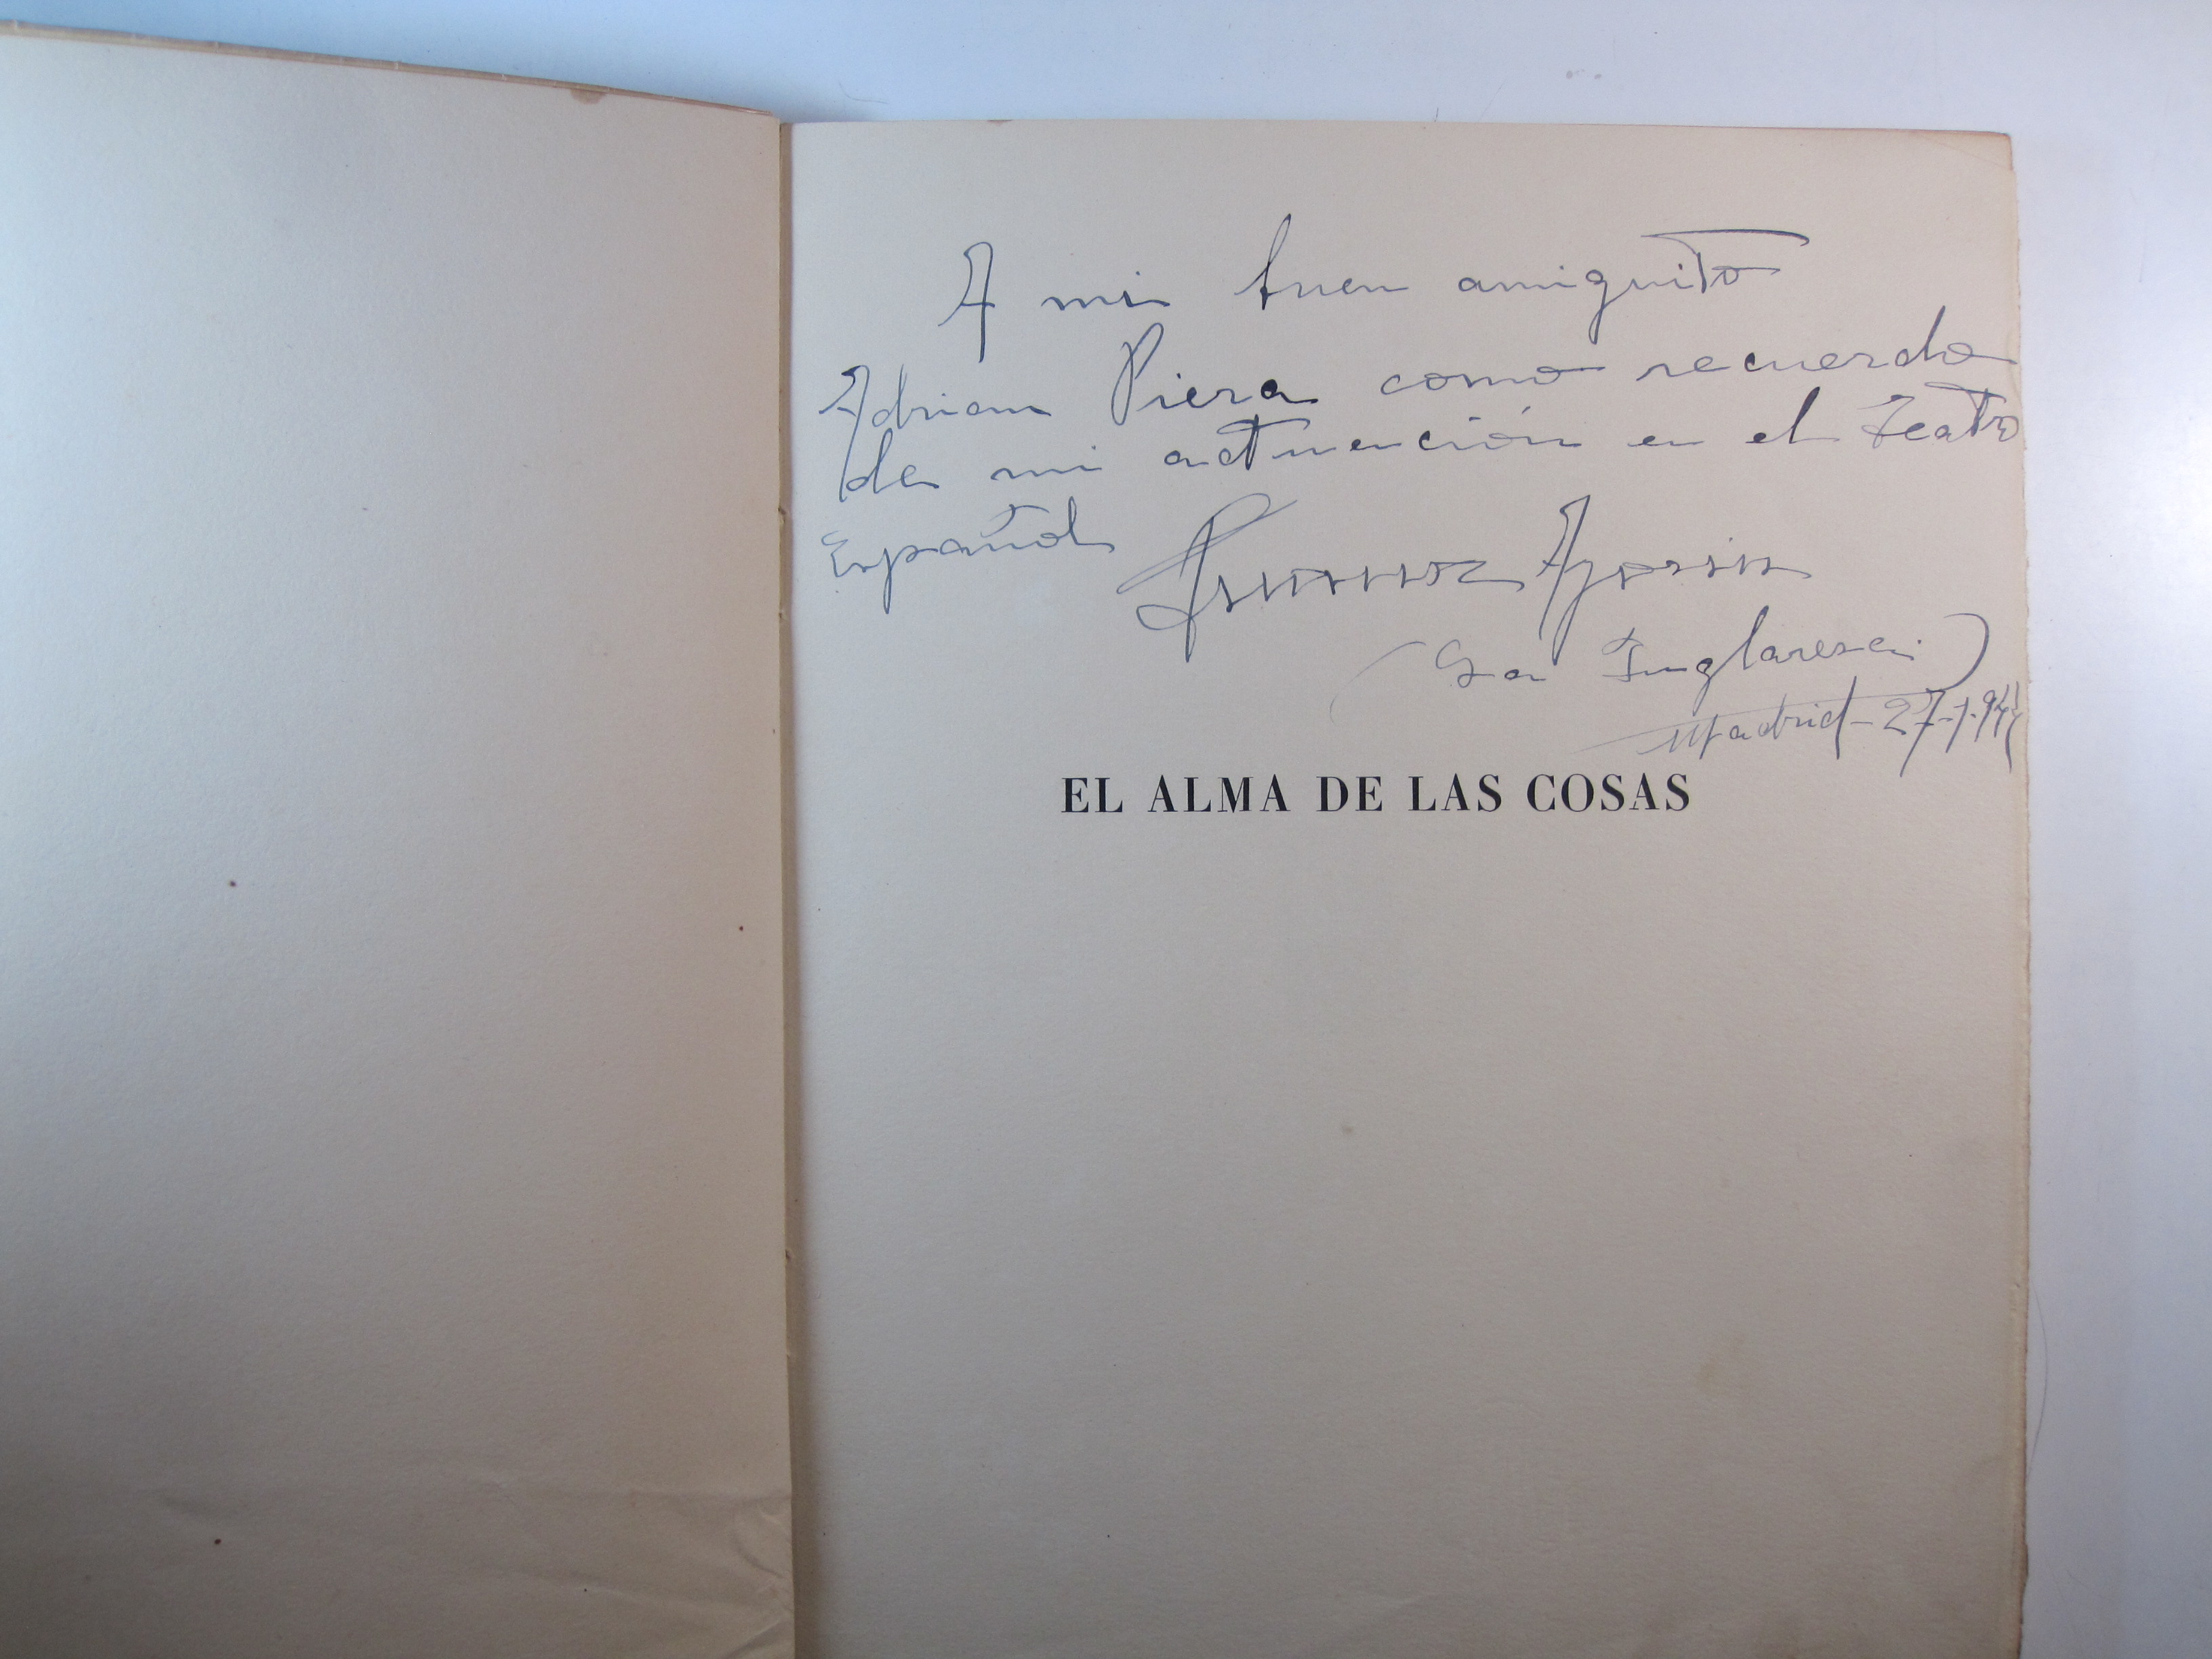 A mi buen amiguito
Adrian Piera como recuerdo
de mi actuación en el Teatro
Español
(La Inglaresa)
Madrid-27-1-944
EL ALMA DE LAS COSAS